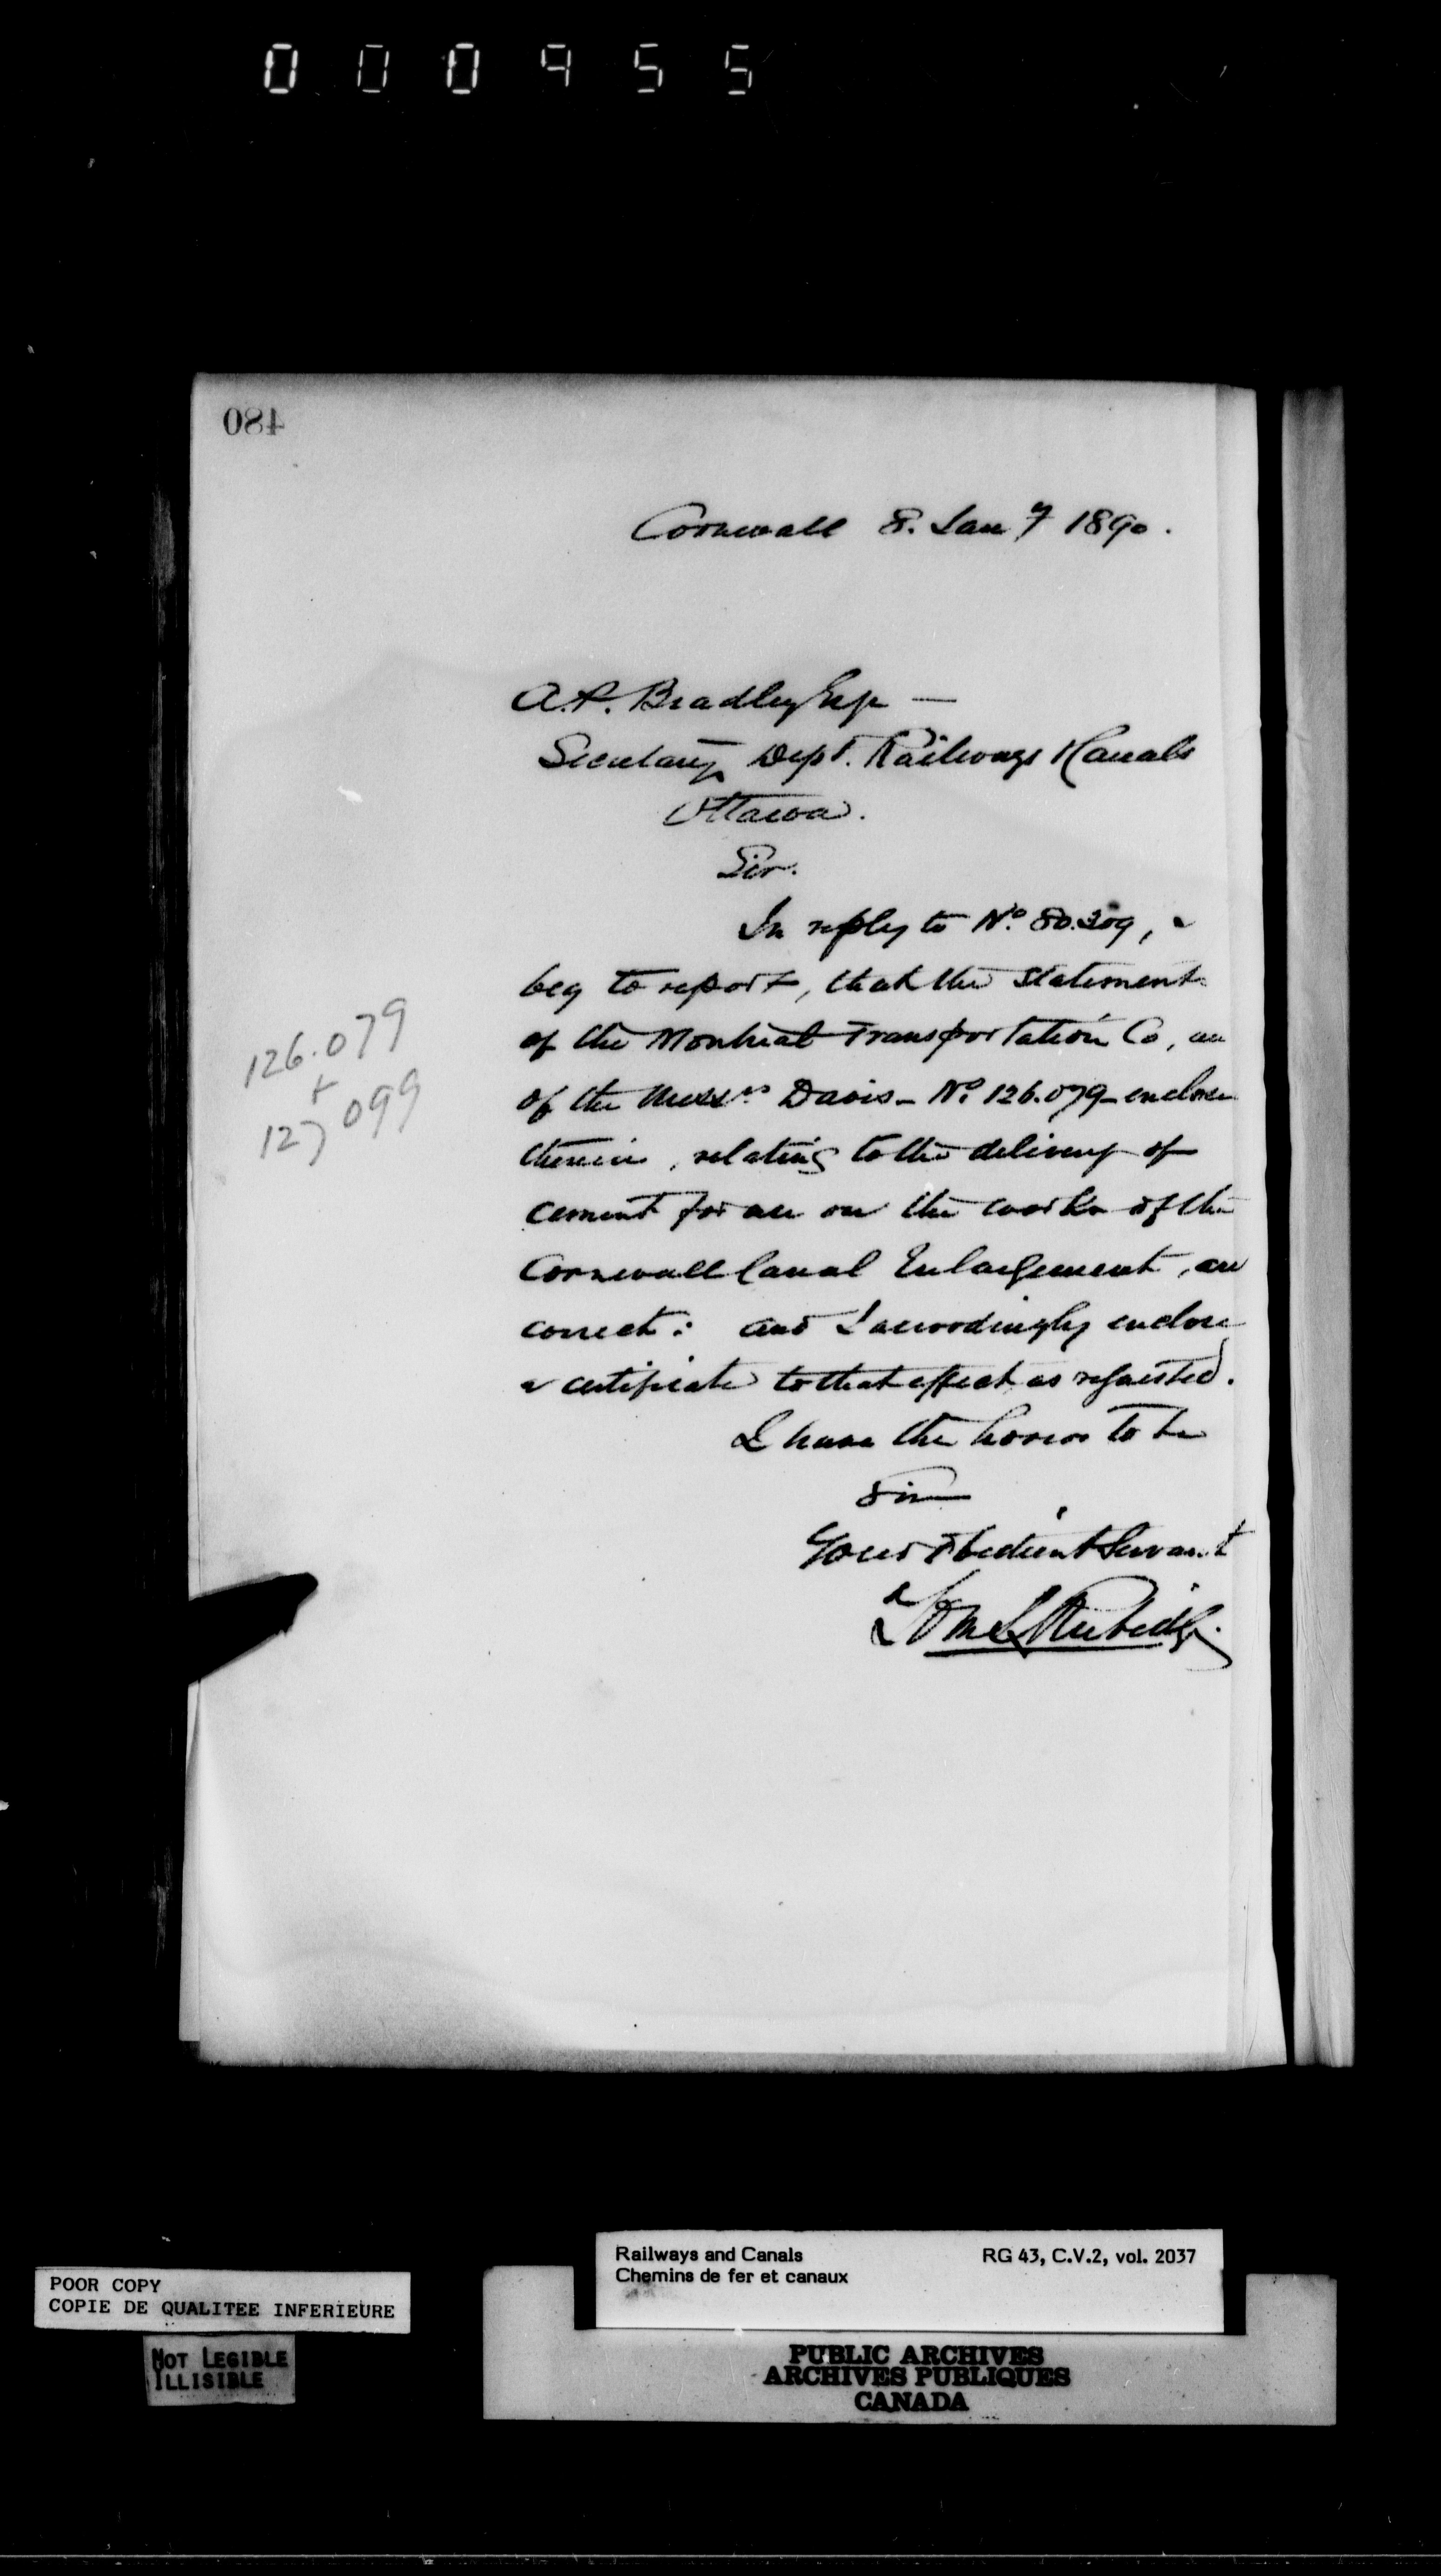 000955
480
Cornwall 8. Jany 1890.
A.P. Bradley Esqr —
Secretary Dept. Railways & Canals
Ottawa.
Sir.
In reply to No. 80.309, I
beg to report, that the statement
of the Montreal Transportation Co, an
of the Messrs Davis - No. 126.079 - enclose
126.079
+
127 099
therein, relating to the delivery of
cement for use on the works of the
Cornwall Canal Enlargement, are
correct: and I accordingly enclose
a certificate to that effect as requested.
I have the honor to be
Sir
Your Obedient Servant
Tom S Rubidge
Railways and Canals RG 43, C.V.2, vol. 2037
Chemins de fer et canaux
POOR COPY
COPIE DE QUALITEE INFERIEURE
NOT LEGIBLE
ILLISIBLE
PUBLIC ARCHIVES
ARCHIVES PUBLIQUES
CANADA